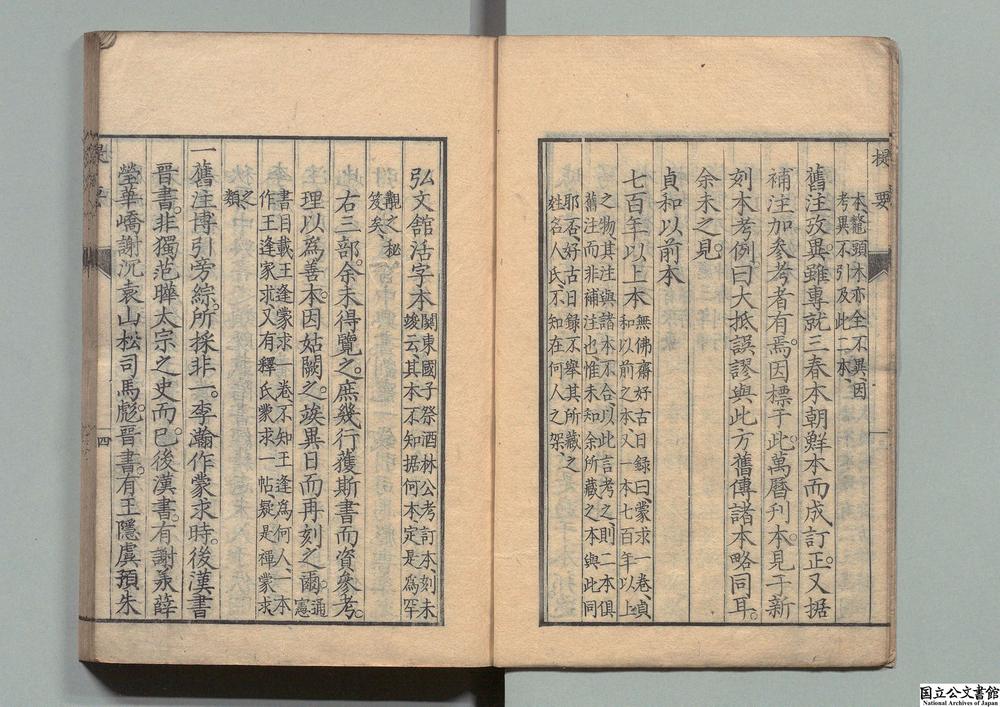 提要
本鼇頭本亦全不異因
考異不引及此二本、
舊注攷異。雖專就三春本朝鮮本而成訂正。又据
補注加參考者有焉。因標于此。萬曆刊本。見于新
刻本考例曰大抵誤謬與此方舊傳諸本略同耳。
余未之見。
貞和以前本
七百年以上本
無佛齋好古日録曰、蒙求一卷、貞
和以前之本又一本七百年以上
之物其注與諸本不合、以此言考之、則二本俱
舊注而非補注也、惟未知余所藏之本與此同
耶否、好古日録不舉其所藏之
姓名人氏、不知在何人之架、
弘文館活字本
関東國子祭酒林公考訂本、刻未
竣云、其本不知据何本、定是為罕
覯之秘
笈矣、
右三部。余未得覽之。庶幾行獲斯書而資參考。
理以為善本。因姑闕之。竢異日而再刻之爾。
通憲
書目載王逢蒙求一卷不知王逢為何人、一本
作王逢家求、又有釋氏蒙求一帖、疑是禪蒙求
之
類
一舊注博引旁綜。所採非一。李瀚作蒙求時。後漢書
晉書。非獨范曄太宗之史而已。後漢書。有謝承薛
瑩華嶠謝沉袁山松司馬彪。晉書。有王隱虞預朱
四
国立公文書館
National Archives of Japan